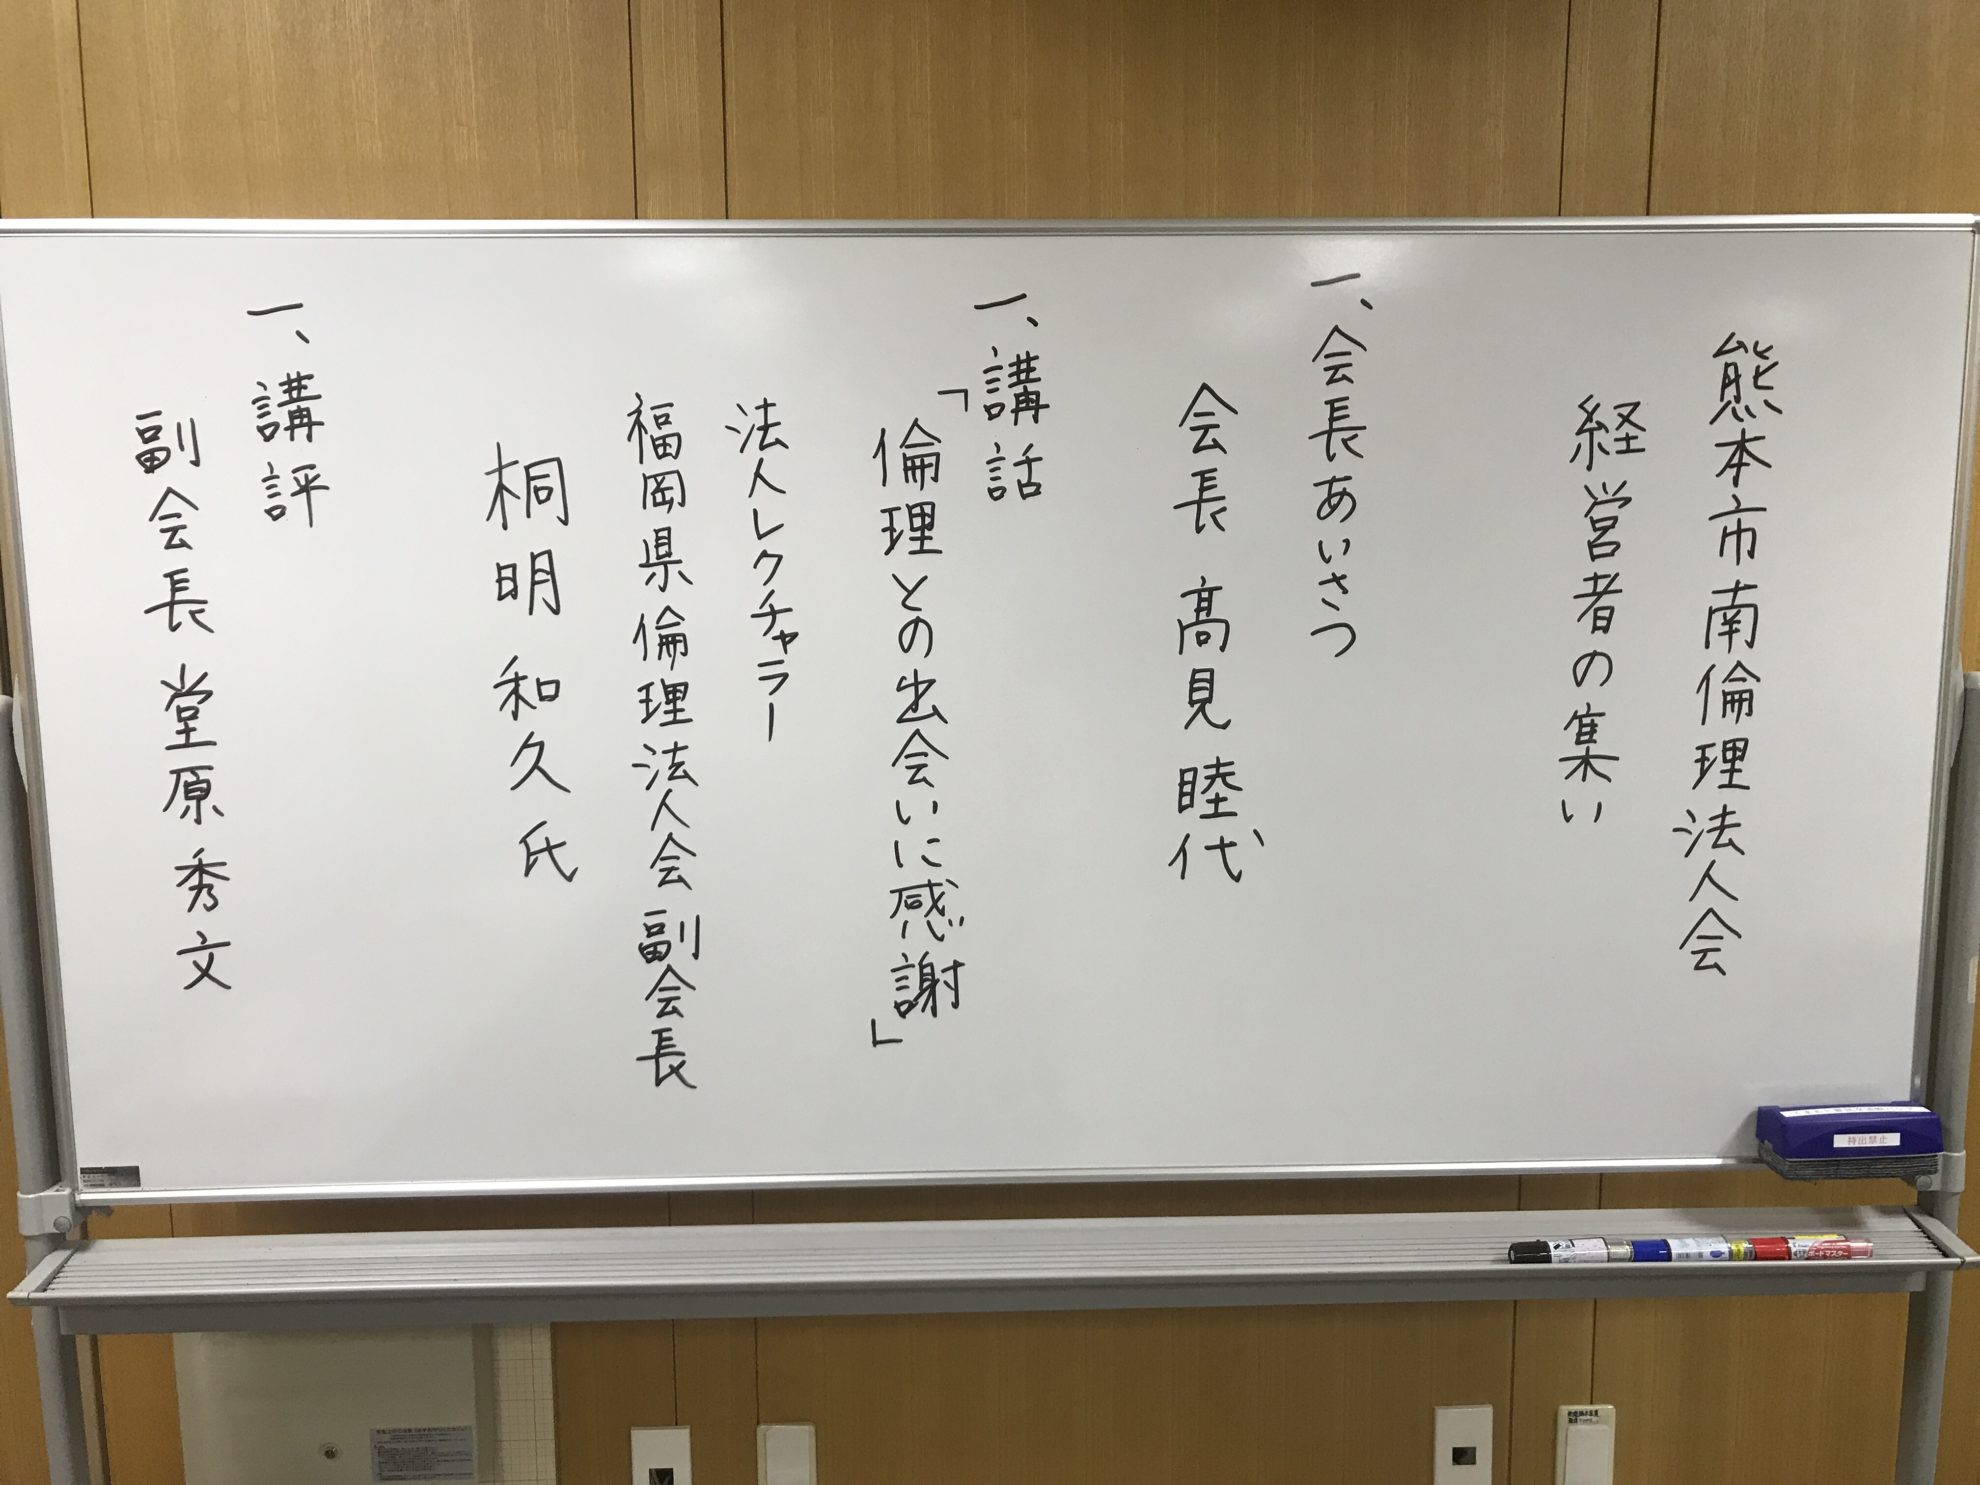 熊本市南倫理法人会
経営者の集い
一、会長あいさつ
会長 髙見 睦代
一、講話
「倫理との出会いに感謝」
法人レクチャラー
福岡県倫理法人会 副会長
桐明 和久氏
一、講評
副会長 堂原 秀文
持出禁止
ボードマスター